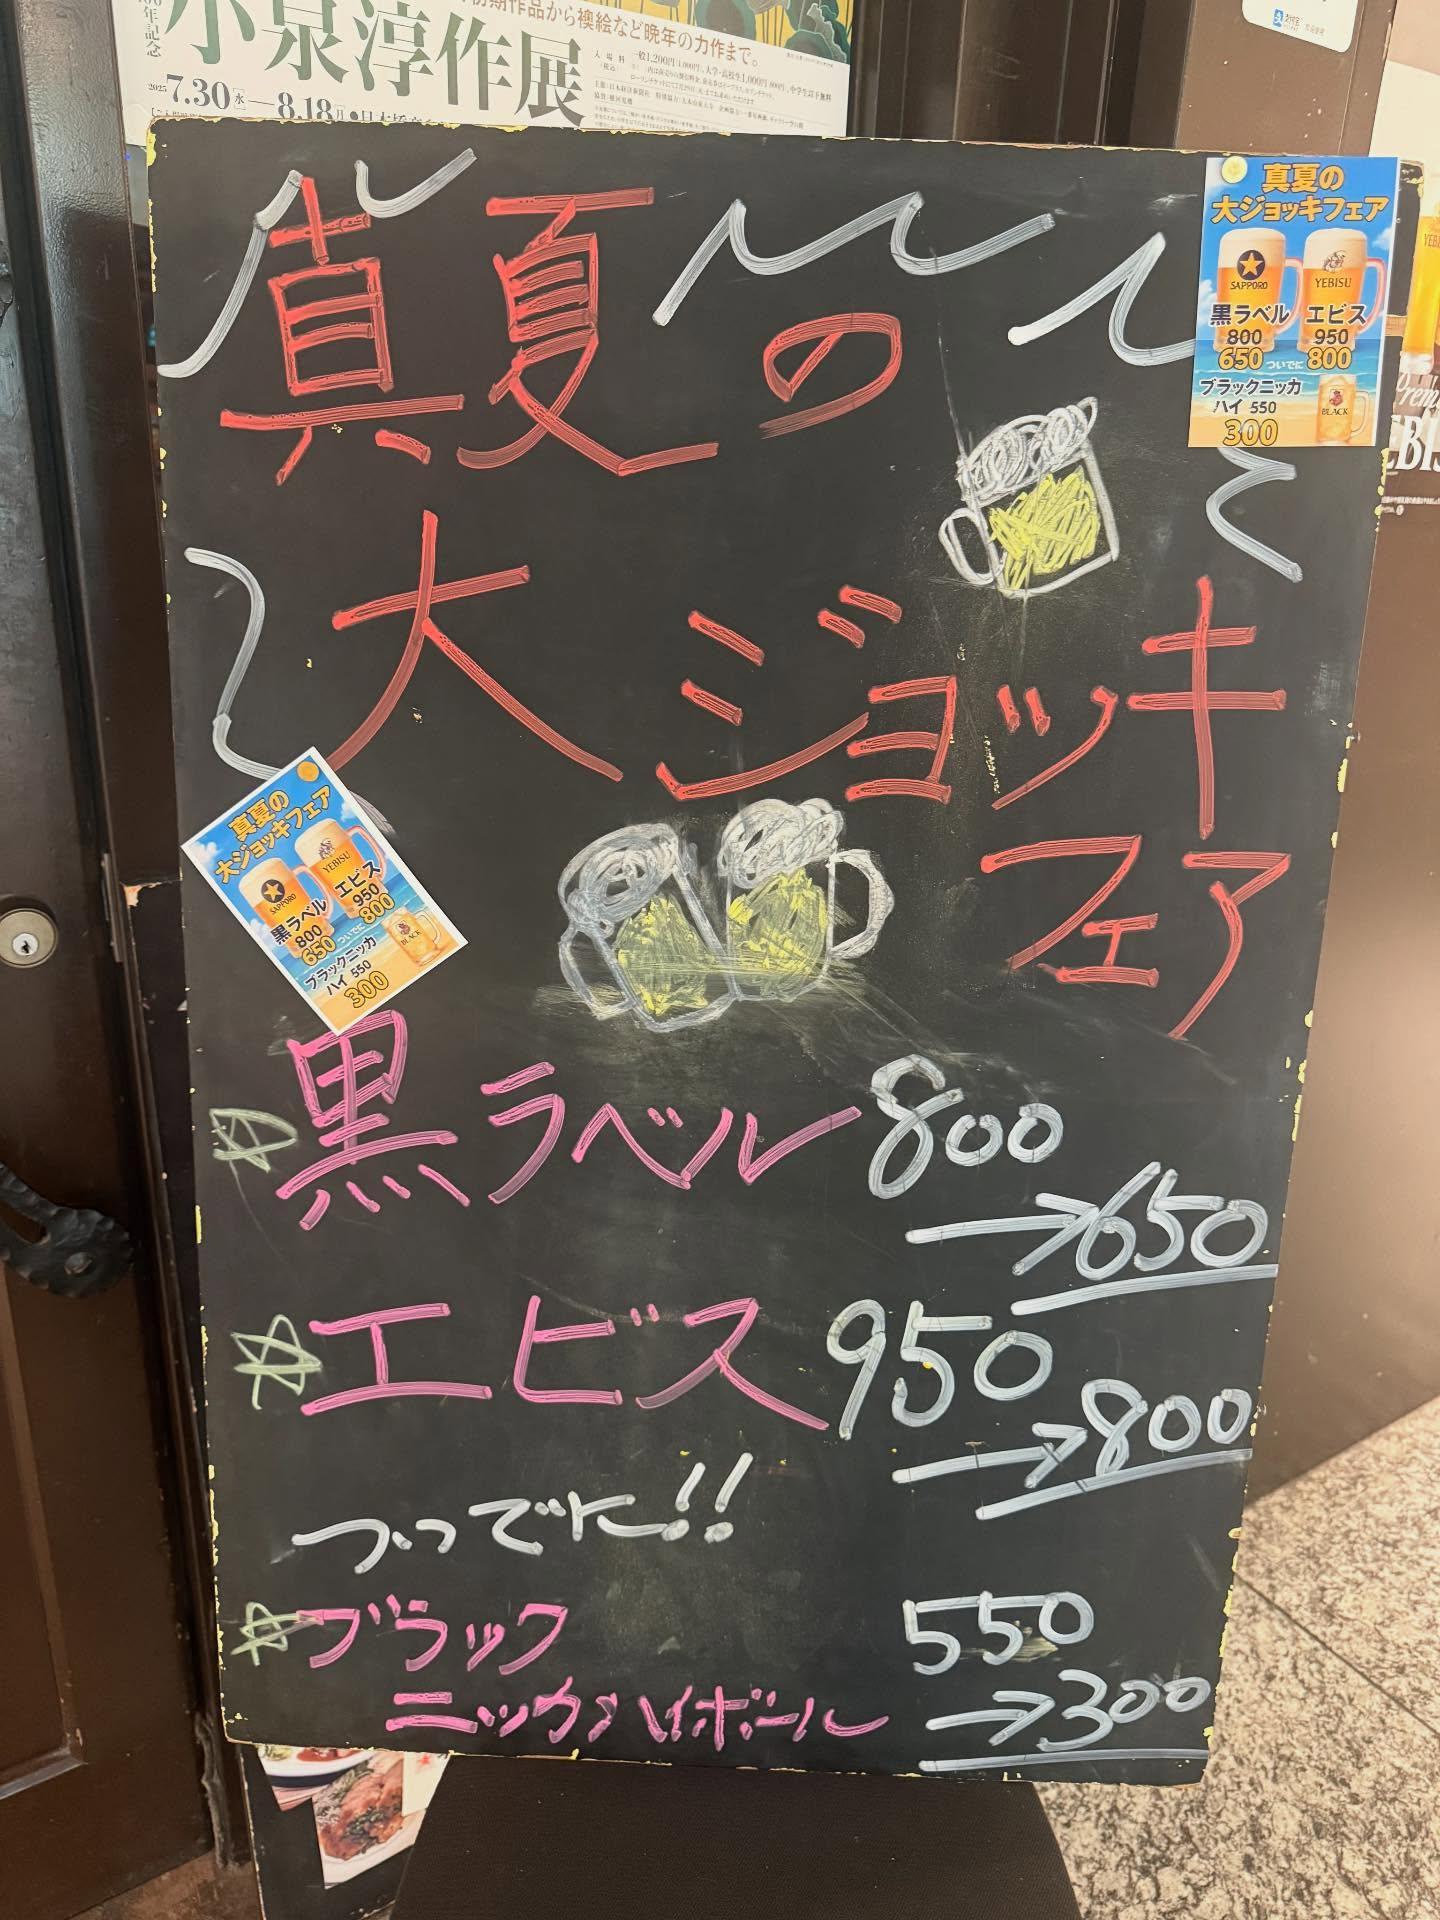 期作品から襖絵など晩年の力作まで。
小泉淳作展
年記念
2025 7.30[水]—8.18[月]
入場料
(税込)
一般1,200円
真夏の
大ジョッキ
フェア
黒ラベル 800
→650
エビス 950
→800
ついでに!!
ブラック 550
ニッカハイボール →300
真夏の
大ジョッキフェア
SAPPORO
YEBISU
黒ラベル エビス
800 950
650 ついでに 800
ブラックニッカ
ハイ 550
BLACK
300
真夏の
大ジョッキフェア
SAPPORO
YEBISU
黒ラベル エビス
800 950
650 ついでに 800
ブラックニッカ
ハイ 550
BLACK
300